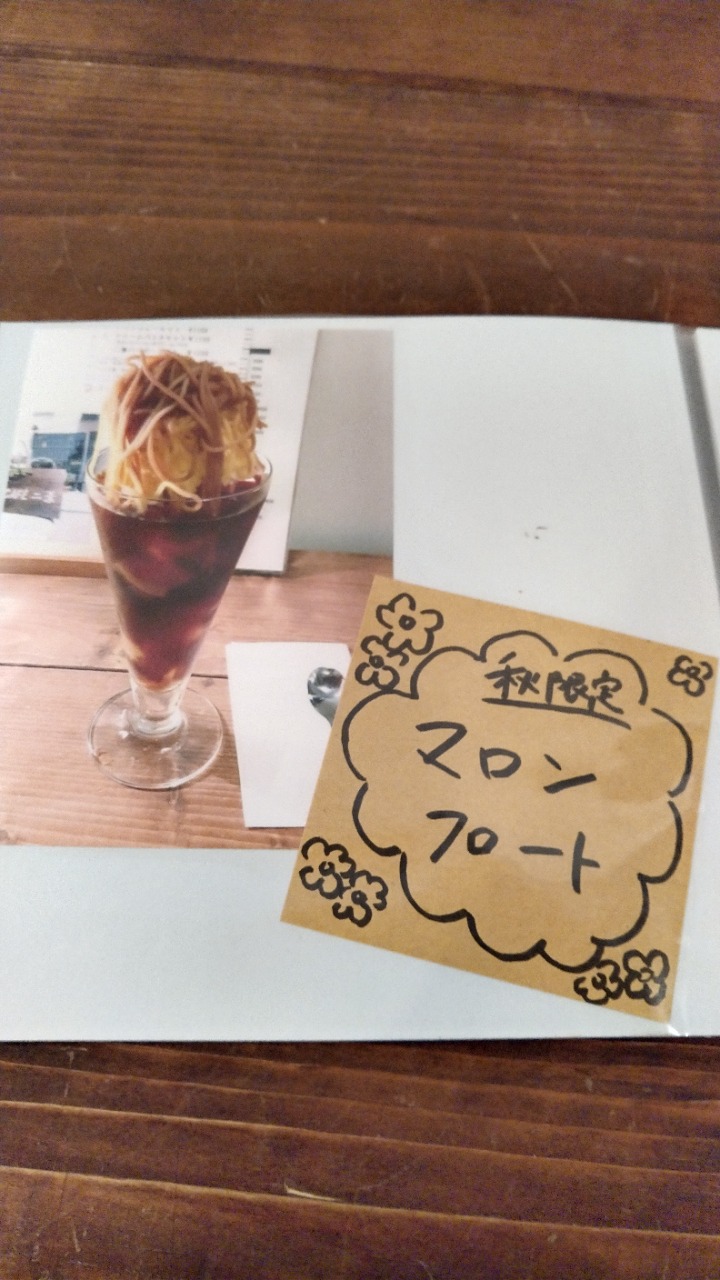 秋限定
マロン
フロート